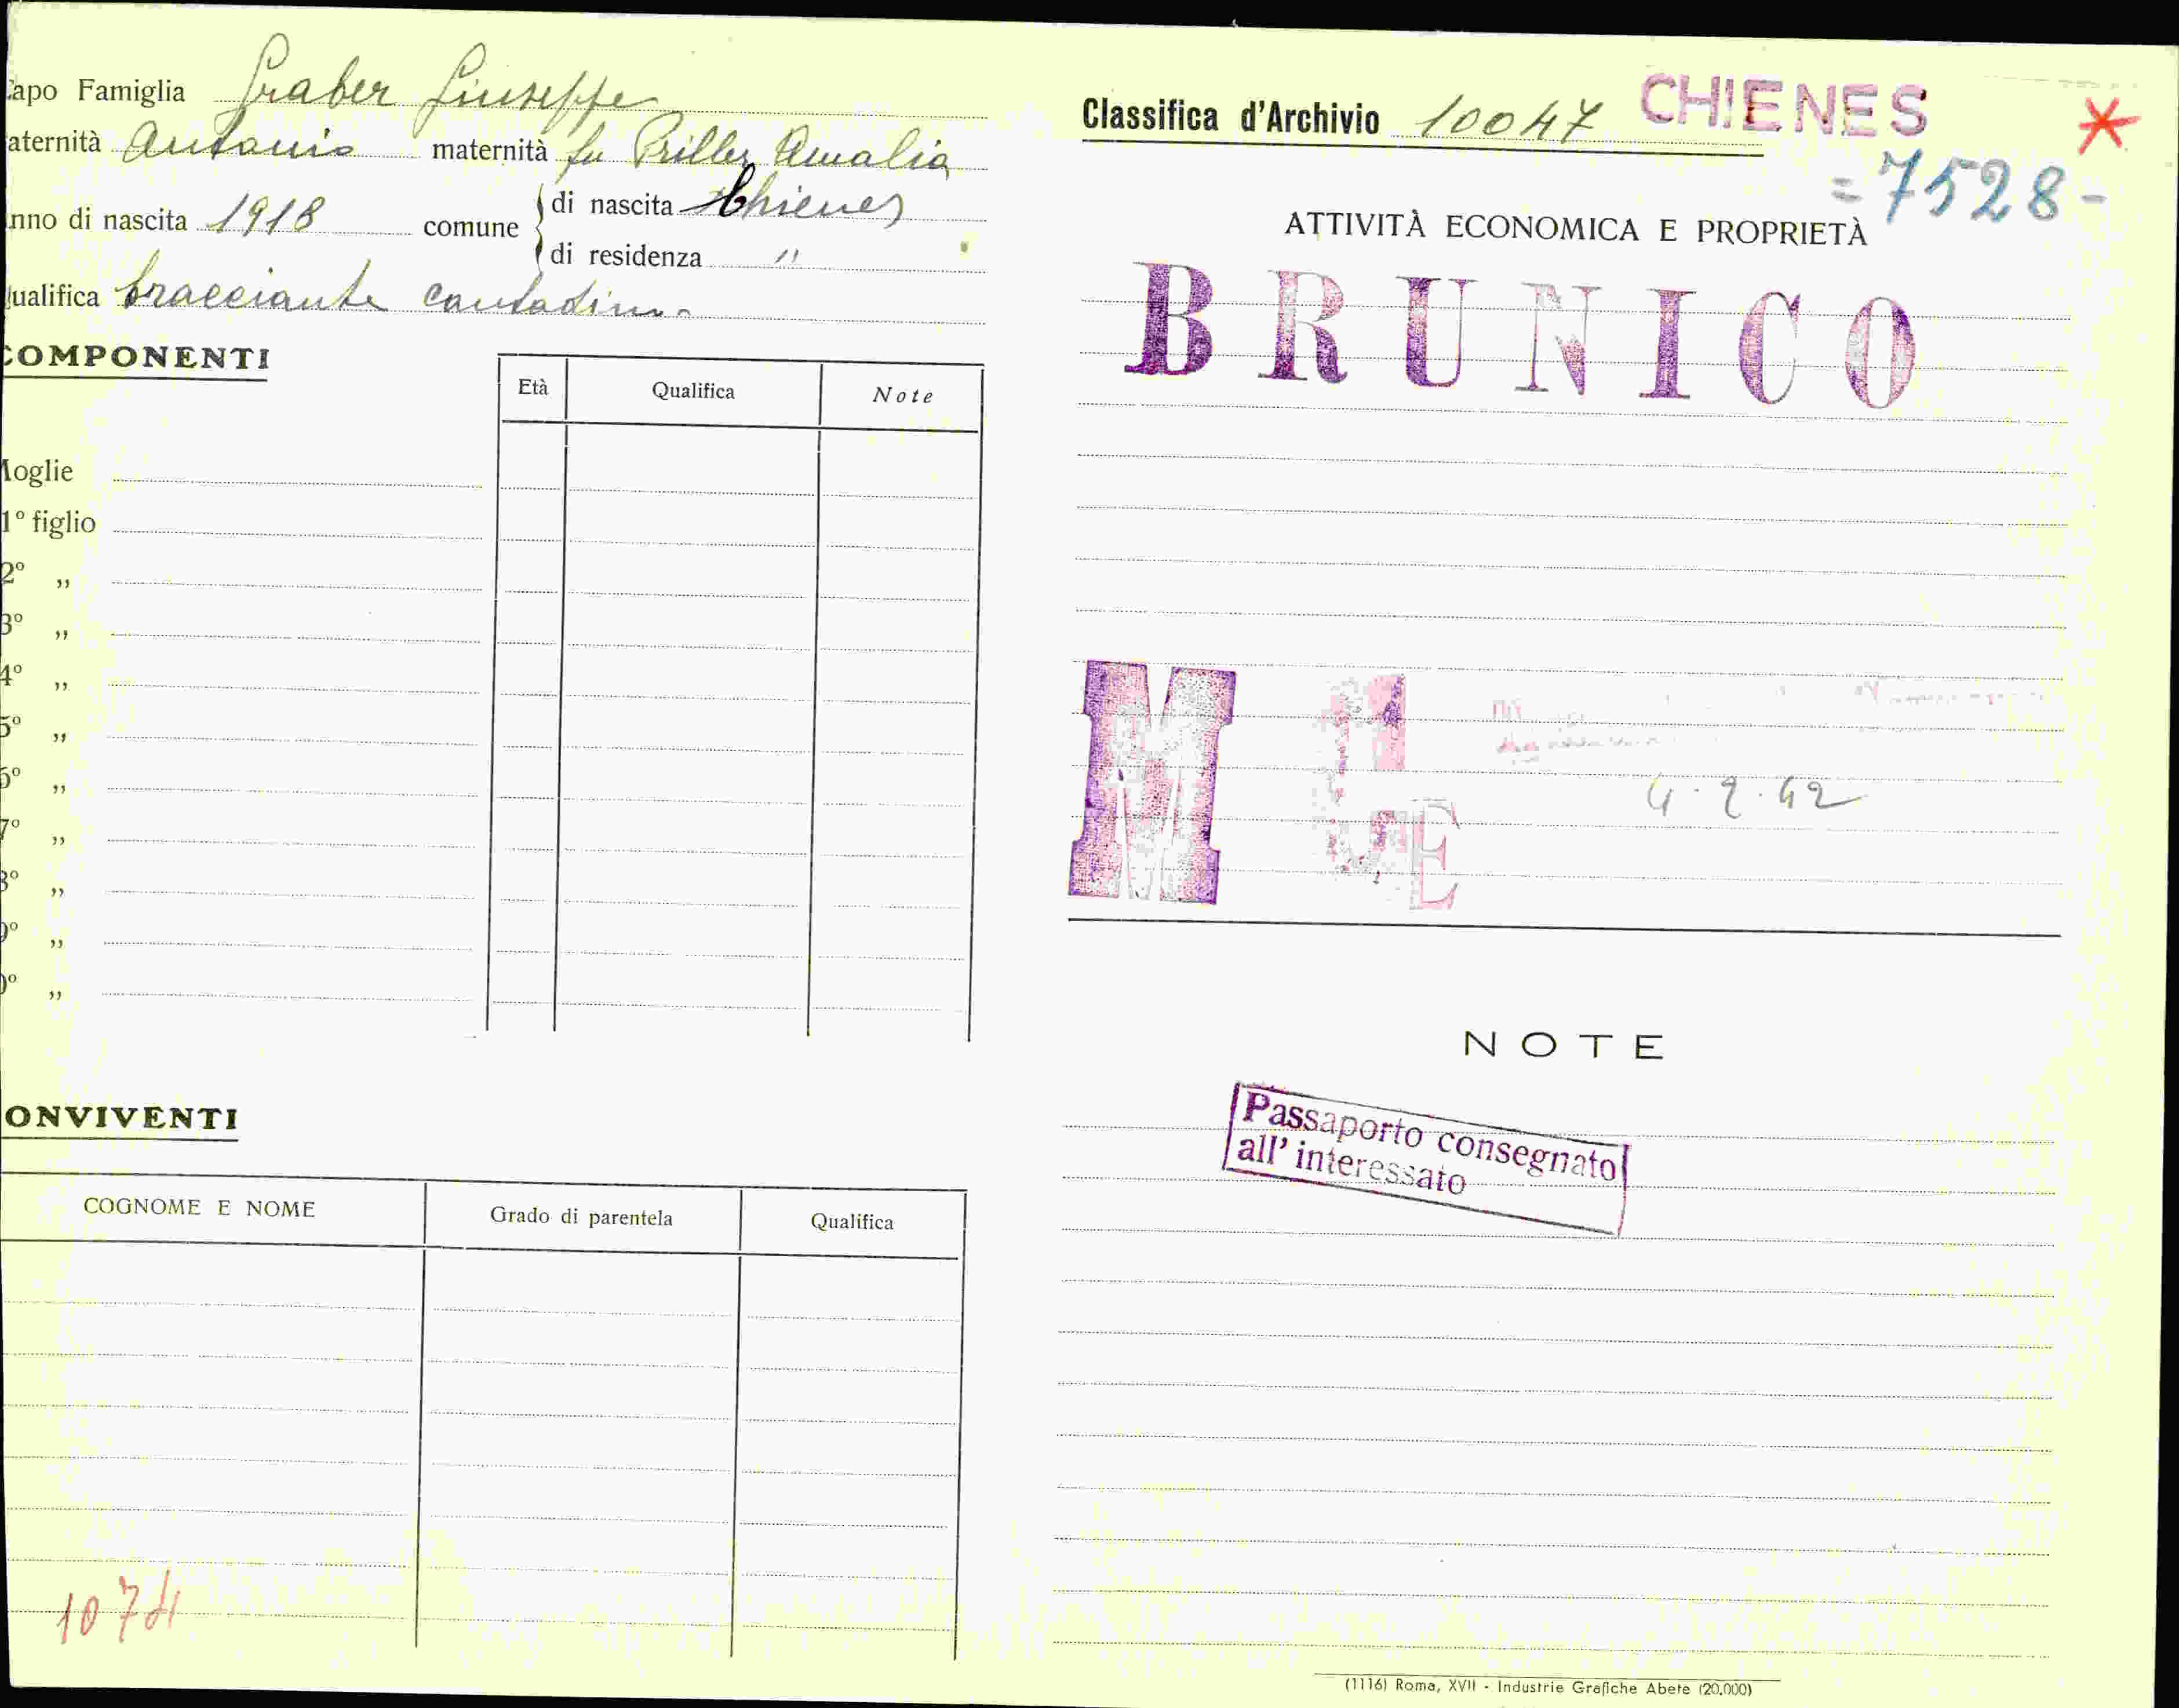 apo Famiglia Graber Giuseppe
aternità Antonio maternità fu Priller Amalia
nno di nascita 1918 comune di nascita Chienes
di residenza "
ualifica bracciante contadino
COMPONENTI
Età Qualifica Note
oglie
1º figlio
2º "
3º "
4º "
5º "
6º "
7º "
8º "
9º "
0º "
ONVIVENTI
COGNOME E NOME Grado di parentela Qualifica
Classifica d'Archivio 10047 CHIENES
=7528-
ATTIVITÀ ECONOMICA E PROPRIETÀ
BRUNICO
M
E
4.2.42
NOTE
Passaporto consegnato
all' interessato
(1116) Roma, XVII - Industrie Grafiche Abete (20.000)